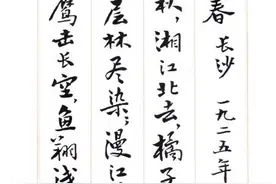 春 长沙 一九二五年
秋，湘江北去，橘子
层林尽染；漫江
鹰击长空，鱼翔浅